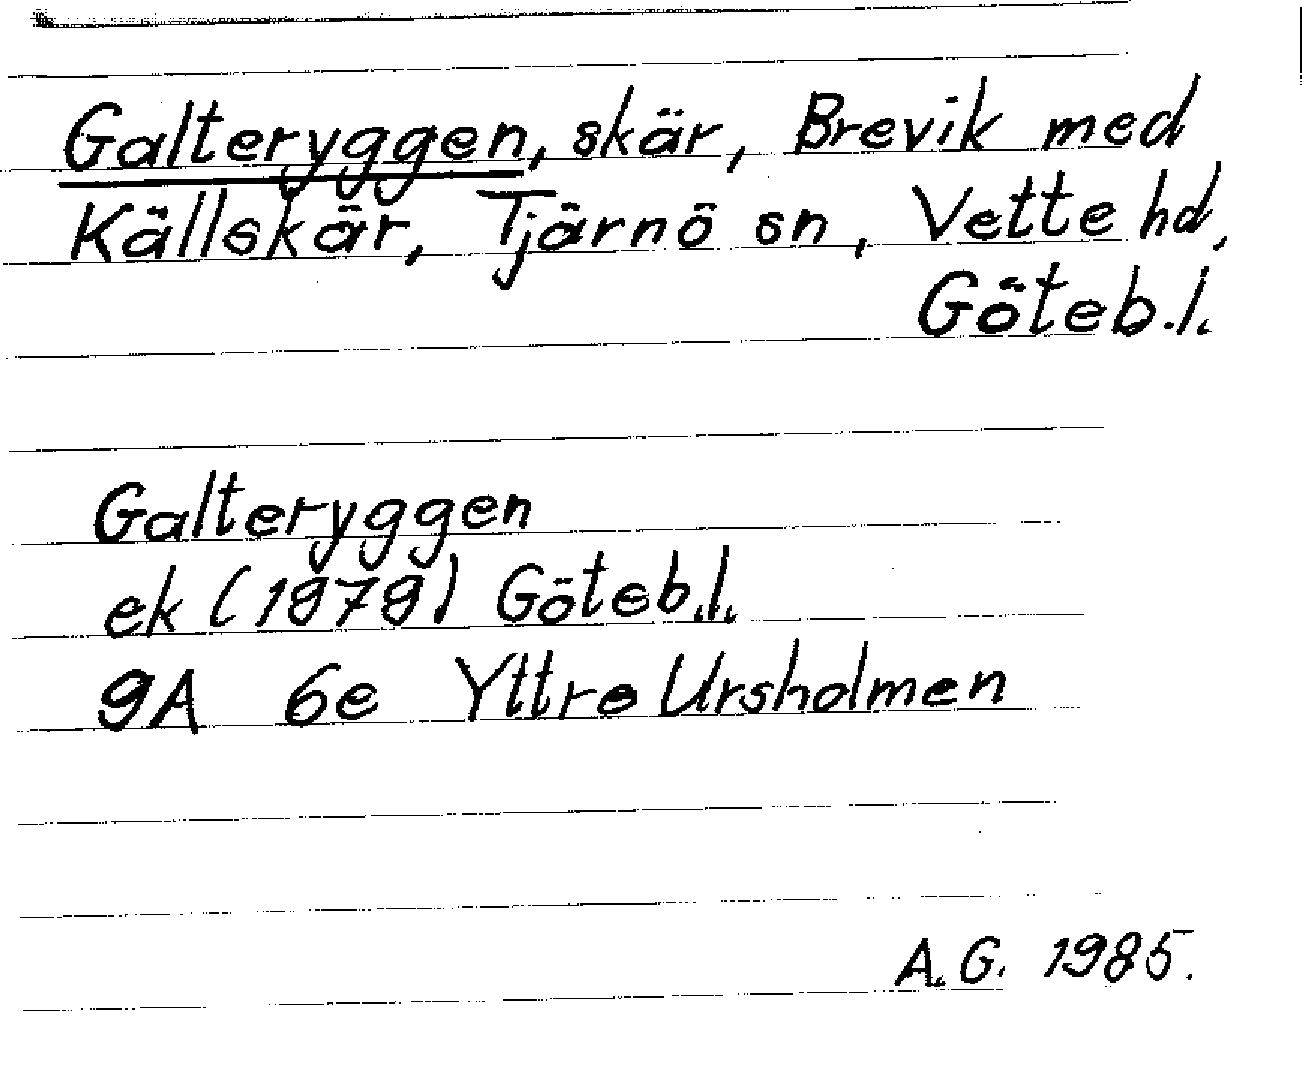 Galteryggen, skär, Brevik med
Källskär, Tjärnö sn, Vette hd,
Göteb.l.
Galteryggen
ek (1979) Göteb.l.
9A 6e Yttre Ursholmen
A.G. 1985.